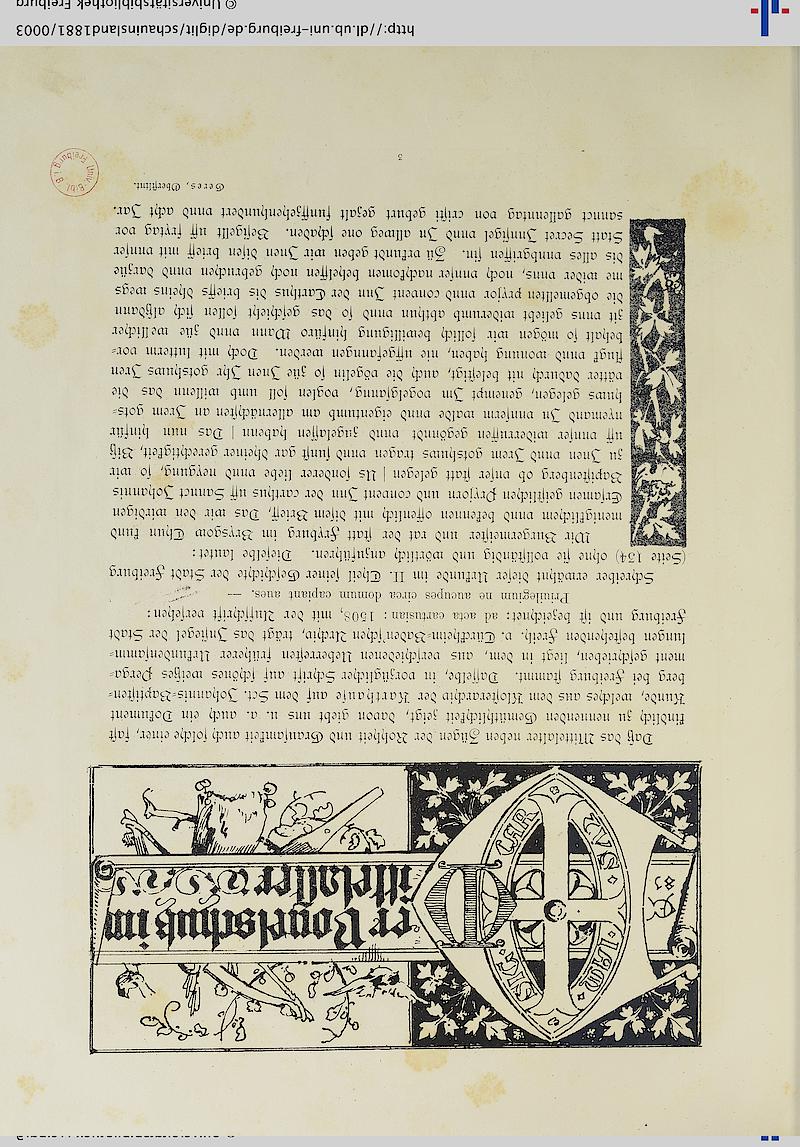 er Vogelschutz im
ittelalter
Daß das Mittelalter neben Zügen der Rohheit und Grausamkeit auch solche einer, fast
kindlich zu nennenden Gemüthlichkeit zeigt, davon giebt uns u. a. auch ein Dokument
Kunde, welches aus dem Klosterarchiv der Karthause auf dem Sct. Johannis-Baptisten-
berg bei Freiburg stammt. Dasselbe, in vorzüglicher Schrift auf schönes weißes Perga-
ment geschrieben, liegt in dem, aus verschiedenen Ueberresten früherer Urkundensamm-
lungen bestehenden Freih. v. Türckheim-Baden'schen Archiv, trägt das Insiegel der Stadt
Freiburg und ist bezeichnet: ad acta cartusian: 1508, mit der Aufschrift versehen:
Priuilegium ne aucupes circa domum capiant aues. —
Schreiber erwähnt dieser Urkunde im II. Theil seiner Geschichte der Stadt Freiburg
(Seite 134) ohne sie vollständig und wörtlich anzuführen. Dieselbe lautet:
Wir Burgermeister und rat der statt Fryburg im Brysgow Thun kund
menigklichem vnnd bekennen offenlich mit disem Brieff, Das wir den wirdigen
Ersamen geistlichen Pryorn und convent Inn der carthus uff Sannct Johannis
Baptistenberg ob unser statt gelegen | Us sonderer liebe annd neygung, so wir
zu Inen annd Irem gotshuws tragen annd sunst gar dheiner gerechtigkeit, Biß
uff annser widerruffen gegönndt annd zugelassen habenn | Das nun hinfür
nyemand In annserm walde annd eigenthumb am allernächsten an Irem gots-
huws gelegen, genempt Im vogelgsanng, voglen soll umb willenn das die
vätter dadurch nit beleitigt, auch die vögelin so für Inen Ihr gotshuws Iren
flugt annd wonung haben, nie uffgefanngen werden. Doch mit lutterm vor-
behalt so mögen wir sollich bewilligung hinfüro Wann annd für wellicher
zit anns geliebt widerumb abthun annd so das geschicht sollen sich alßdann
die obgemellten pryor annd convent Inn der Carthus dis brieffs dheins wegs
me wider anns, noch annser nachkomen behelffen noch gebruchen annd dargüe
dis alles annbgriffen sin. Zü arkundt geben wir Inen disen brieff mit annser
Statt Secret Innsigel annd In allweg one schaden. Besigellt uff frytag vor
sannct gallenntag von cristi geburt gezalt funffzehenhundert annd acht Jar.
Geres, Oberstlieut.
3
http://dl.ub.uni-freiburg.de/diglit/schauinsland1881/0003
© Universitätsbibliothek Freiburg